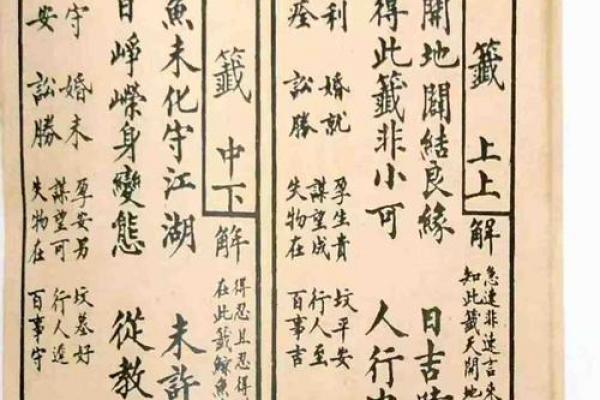 籤 上上 解
急速非速言未
知此籤天開地
開地闢結良緣 日吉時
得此籤非小可 人行
利 婚就 孕生貴 坟平安
謀望成 行人至
痊 訟勝 失物在 百事吉
籤 中下 解
得忍且忍得
在此籤鯨魚
魚未化守江湖 未許
日崢嶸身變態 從教
守 婚未 孕安男 坟墓好
謀望可 行人遲
安 訟勝 失物在 百事守